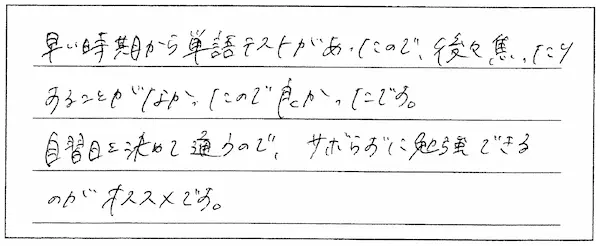 早い時期から単語テストがあったので、後々焦ったり
することがなかったので良かったです。
自習日を決めて通うので、サボらずに勉強できる
のがオススメです。